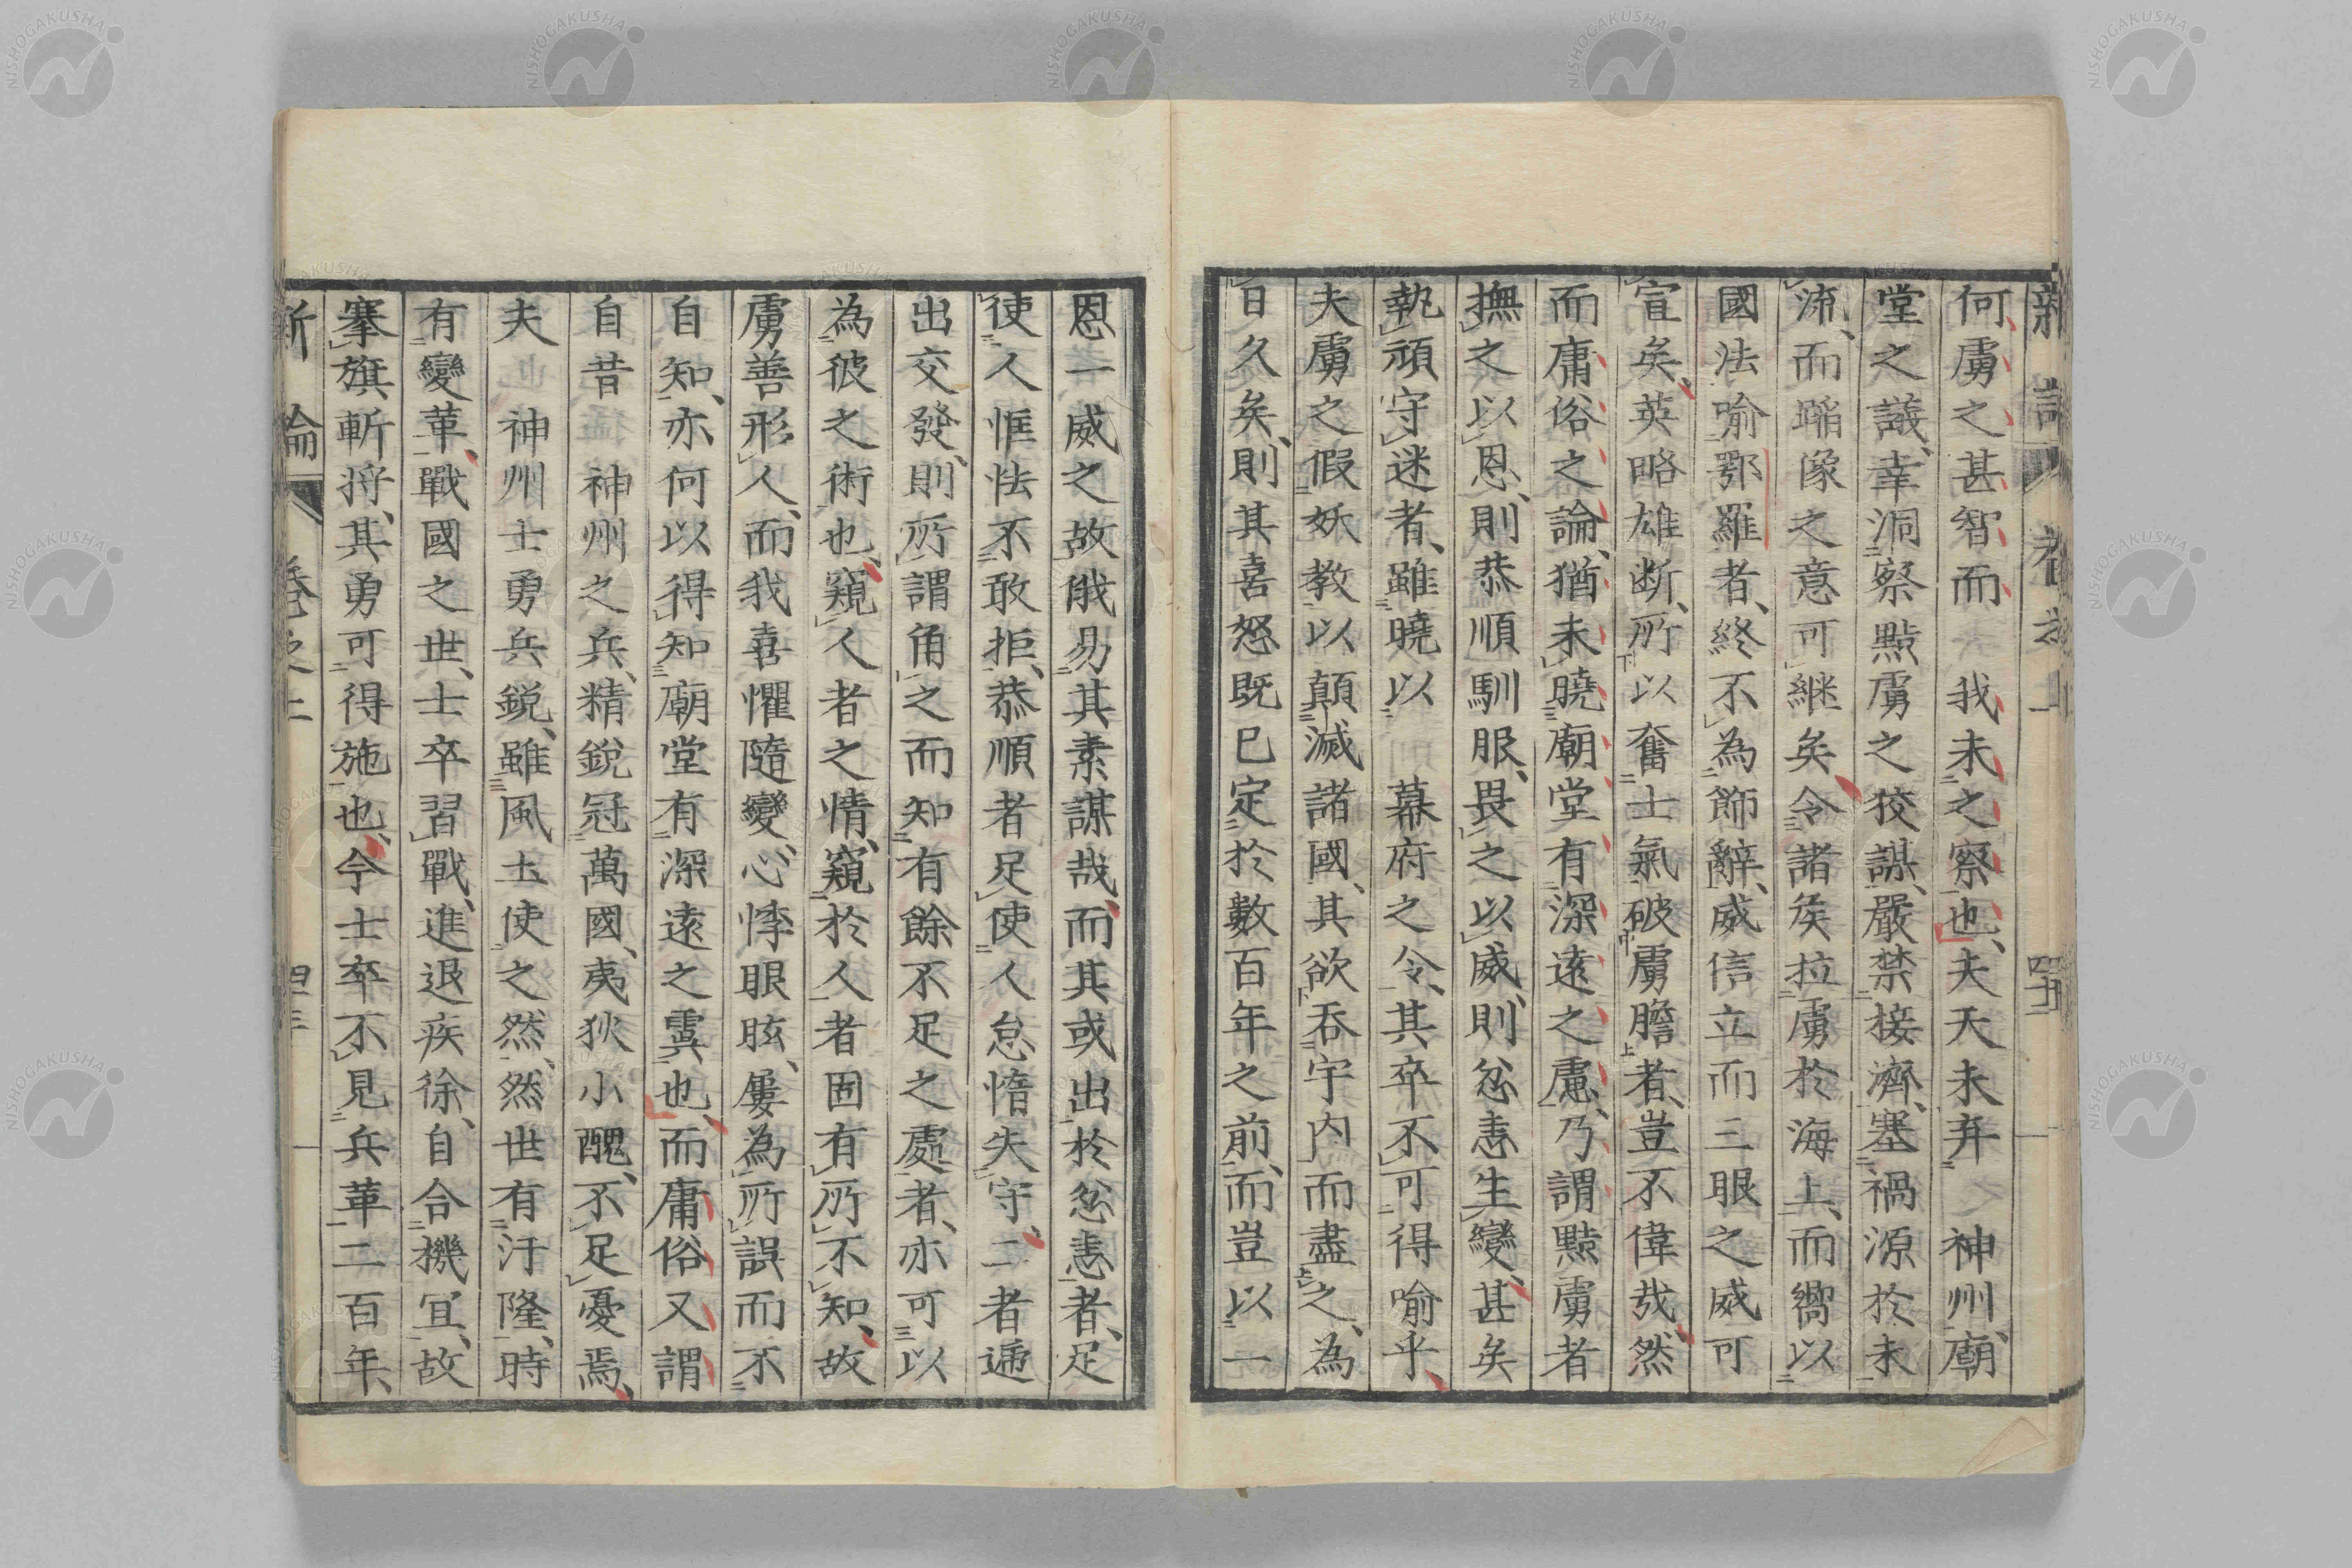 何虜之甚智而我未之察也、夫天未弃　神州、廟
堂之議、幸洞察黠虜之狡謀、嚴禁接濟、塞禍源於未
流、而蹈像之意可継矣、令諸矦拉虜於海上、而嚮以
國法喻鄂羅者、終不為飾辭、威信立而三眼之威可
宣矣、英略雄断、所以奮士氣破虜膽者、豈不偉哉、然
而庸俗之論、猶未曉廟堂有深遠之慮、乃謂黠虜者
撫之以恩、則恭順馴服、畏之以威、則忿恚生變、甚矣
執頑守迷者、雖曉以　幕府之令、其卒不可得喻乎、
夫虜之假妖教以顛滅諸國、其欲吞宇内而盡之、為
日久矣、則其喜怒既已定於數百年之前、而豈以一
恩一威之故、俄易其素謀哉、而其或出於忿恚者、足
使人恇怯不敢拒、恭順者足使人怠惰失守、二者遞
出交發、則所謂角之而知有餘不足之處者、亦可以
為彼之術也、窺人者之情、窺於人者固有所不知、故
虜善形人、而我喜懼隨變、心悸眼眩、屢為所誤而不
自知、亦何以得知廟堂有深遠之虞也、而庸俗又謂
自昔　神州之兵、精銳冠萬國、夷狄小醜、不足憂焉、
夫　神州士勇兵銳、雖風土使之然、然世有汙隆、時
有變革、戰國之世、士卒習戰、進退疾徐、自合機宜、故
搴旗斬将、其勇可得施也、今士卒不見兵革二百年、
新論　卷之上　四十三